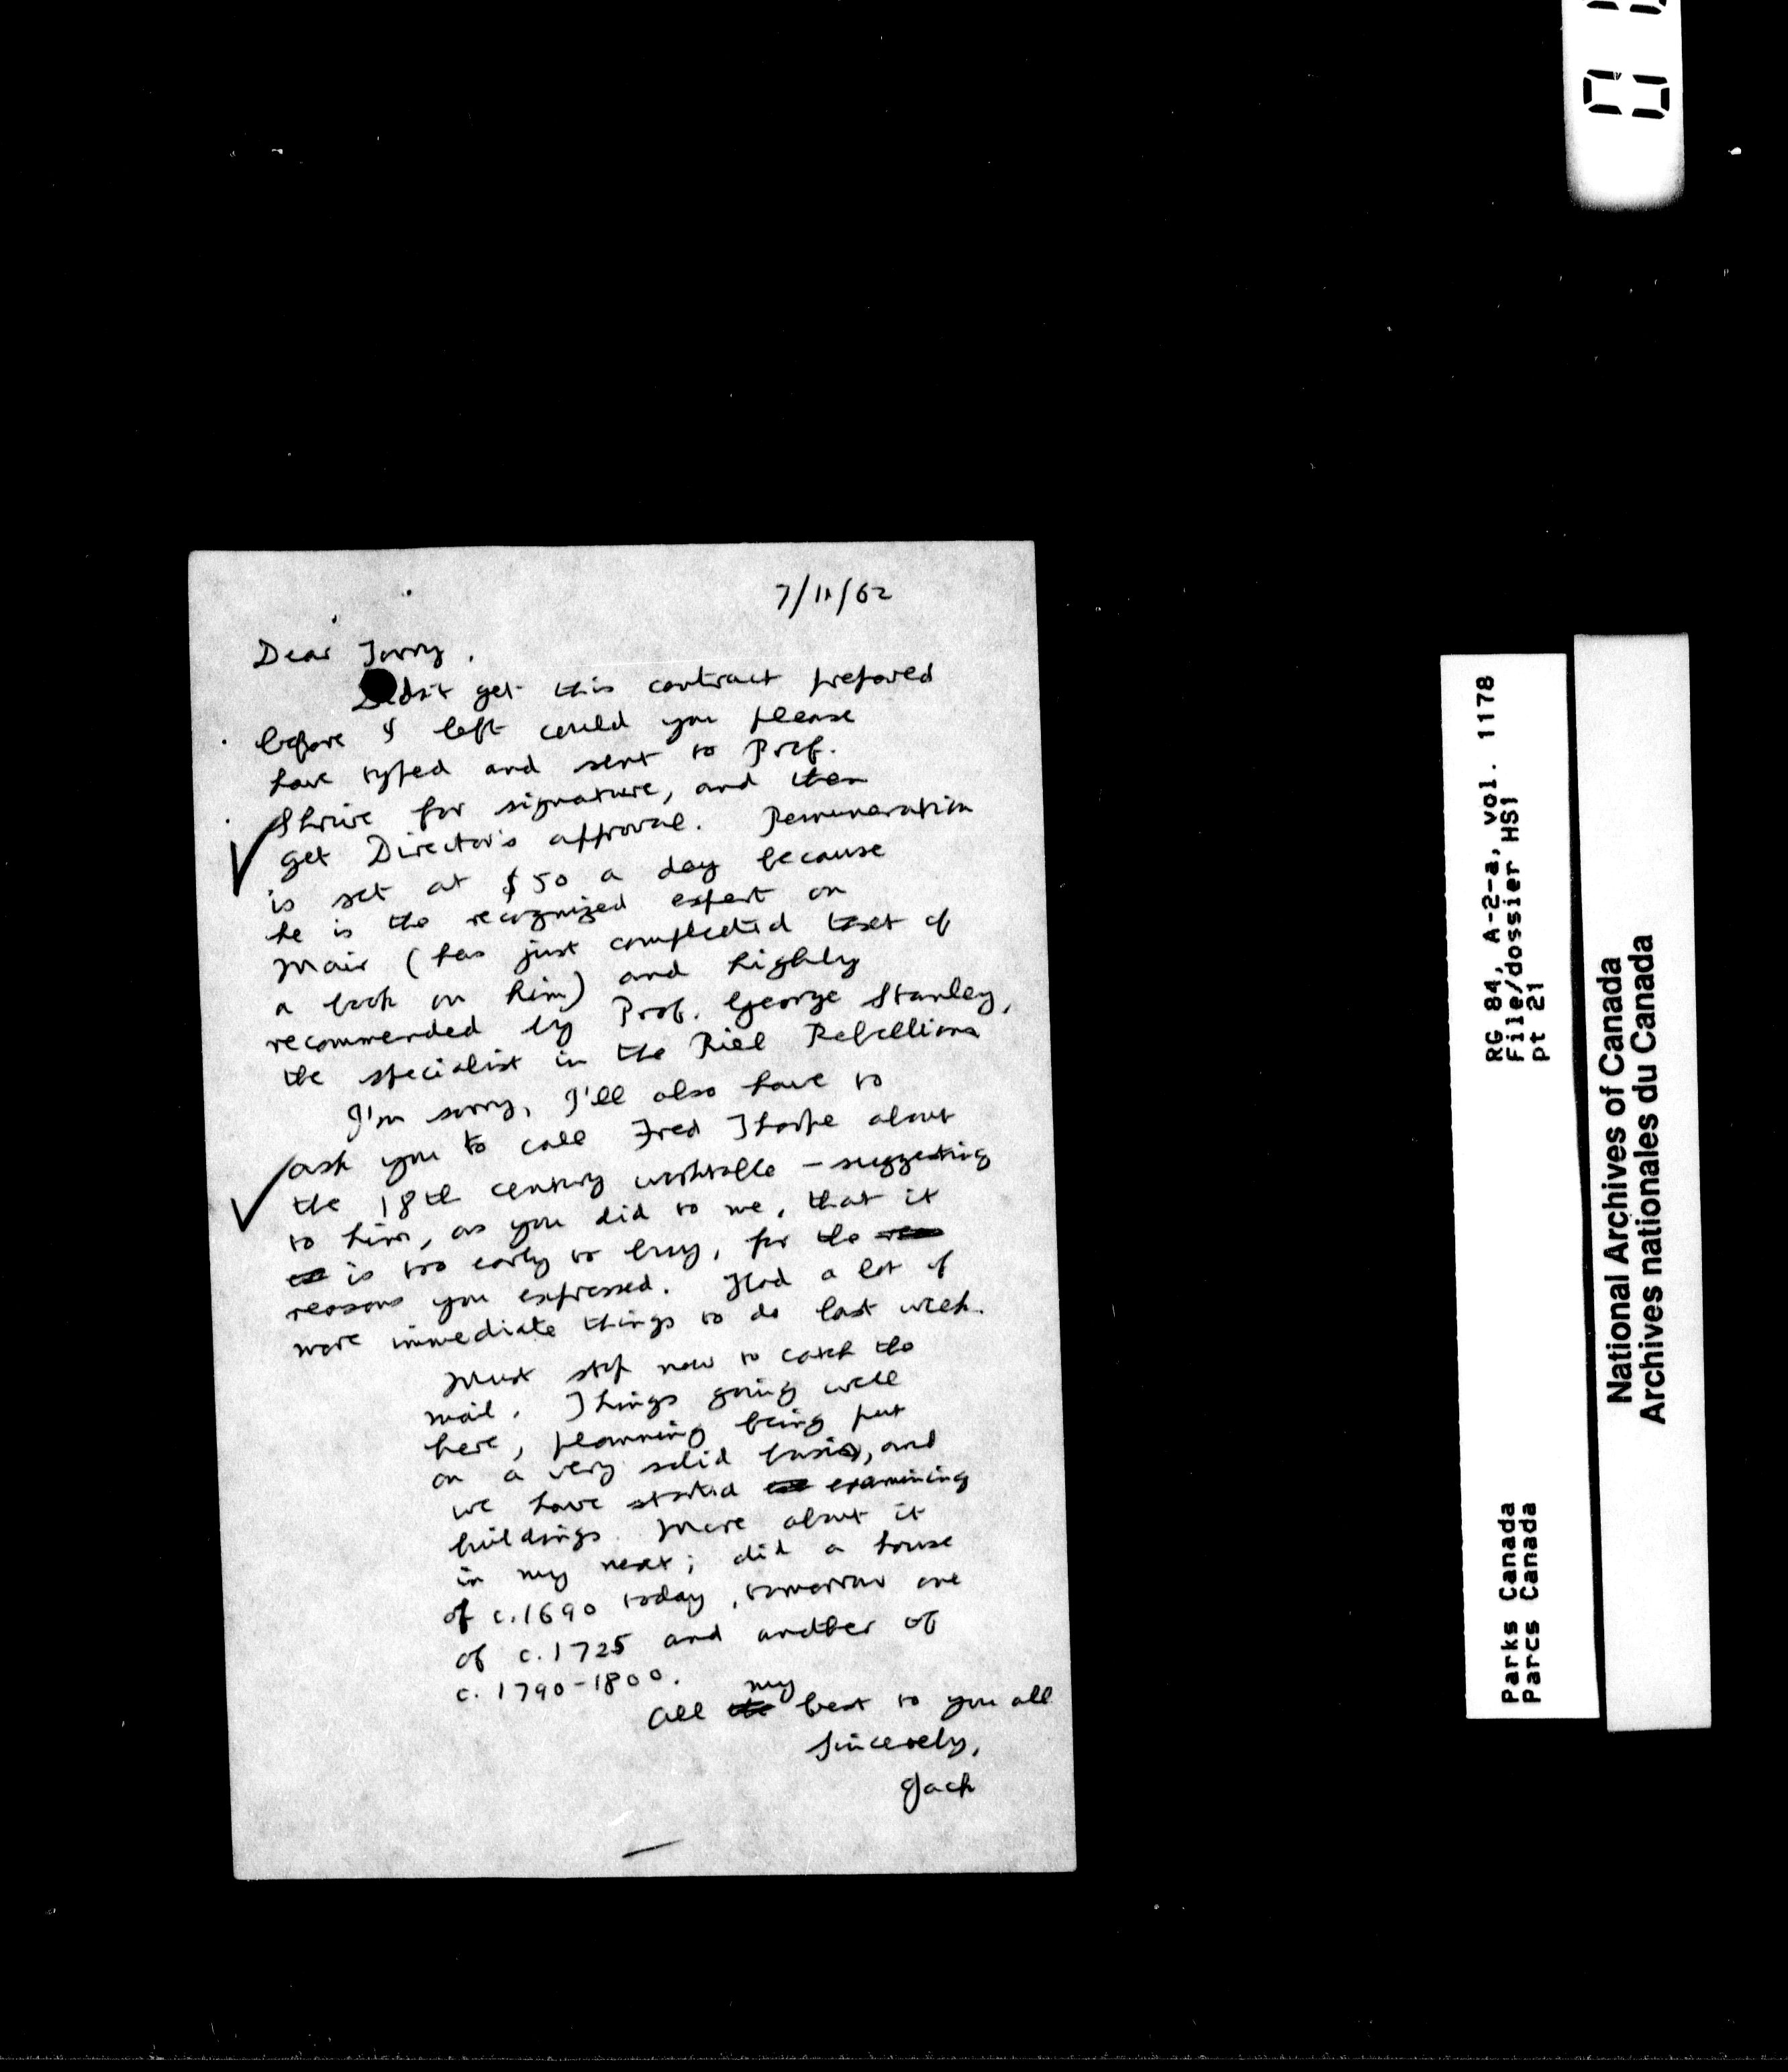 7/11/62
Dear Terry,
Didn't get this contract prepared
before I left could you please
have typed and sent to Prof.
Shrive for signature, and then
get Director's approval. Remuneration
is set at $50 a day because
he is the recognized expert on
Mair (has just completed text of
a book on him) and highly
recommended by Prof. George Stanley,
the specialist in the Riel Rebellions
I'm sorry, I'll also have to
ask you to call Fred Thorpe about
the 18th century
to him, as you did to me, that it
is too early to buy, for the
reasons you expressed. Had a lot of
more immediate things to do last week.
Must stop now to catch the
mail. Things going well
here, planning being put
on a very solid basis, and
we have started examining
buildings. More about it
in my next; did a house
of c.1690 today, tomorrow one
of c.1725 and another of
c. 1790-1800.
All my best to you all
Sincerely,
Jack
RG 84, A-2-a, vol. 1178
File/dossier HS1
pt 21
Parks Canada
Parcs Canada
National Archives of Canada
Archives nationales du Canada